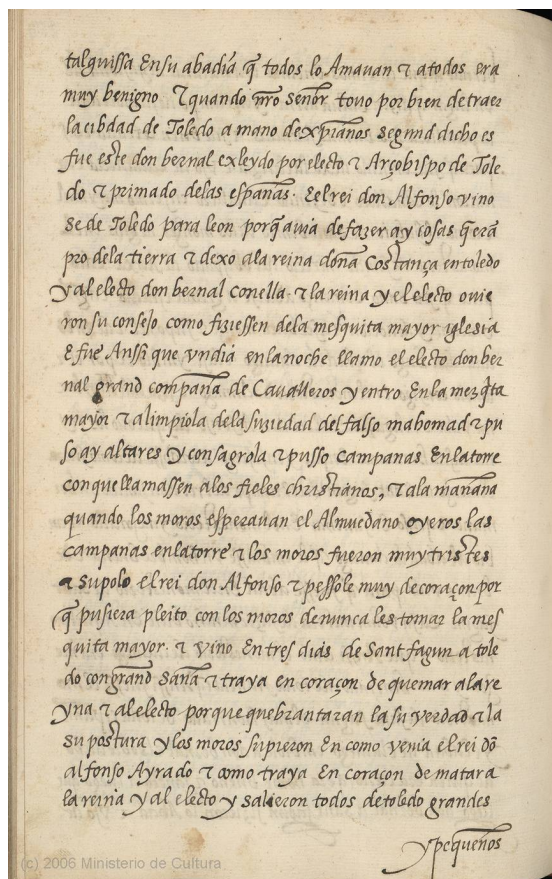 tal guissa En su abadia q̃ todos lo Amauan ⁊ a todos era
muy benigno ⁊ quando nr̃o Señor touo por bien de traer
la cibdad de Toledo a mano dexp̃ianos segund dicho es
fue este don bernal exleydo por electo ⁊ Arçobispo de Tole
do ⁊ primado delas españas. E el rei don Alfonso vino
se de Toledo para leon porq̃ auia de fazer ay cosas q̃ erã
pro dela tierra ⁊ dexo ala reina doña Costança en toledo
y al electo don bernal con ella. ⁊ la reina y el electo ouie
ron su consejo como fiziessen dela mesquita mayor iglesia
E fue Anssi que vn dia en la noche llamo el electo don ber
nal grand compaña de Caualleros y entro En la mezq̃ta
mayor ⁊ alimpiola dela suziedad del falso mahomad ⁊ pu
so ay altares y consagrola ⁊ pusso campanas En la torre
con que llamassen alos fieles christianos, ⁊ ala mañana
quando los moros esperauan el Almuedano oyeros las
campanas en la torre ⁊ los moros fueron muy tristes
⁊ supolo el rei don Alfonso ⁊ pessole muy de coraçon por
q̃ pusiera pleito con los moros de nunca les tomar la mes
quita mayor. ⁊ vino En tres dias de Sant fagun a tole
do con grand saña ⁊ traya en coraçon de quemar ala re
yna ⁊ al electo porque quebrantaran la su verdad ⁊ la
su postura y los moros supieron En como venia el rei dõ
alfonso Ayrado ⁊ como traya En coraçon de matar a
la reina y al electo y salieron todos de toledo grandes
y pequeños
(c) 2006 Ministerio de Cultura